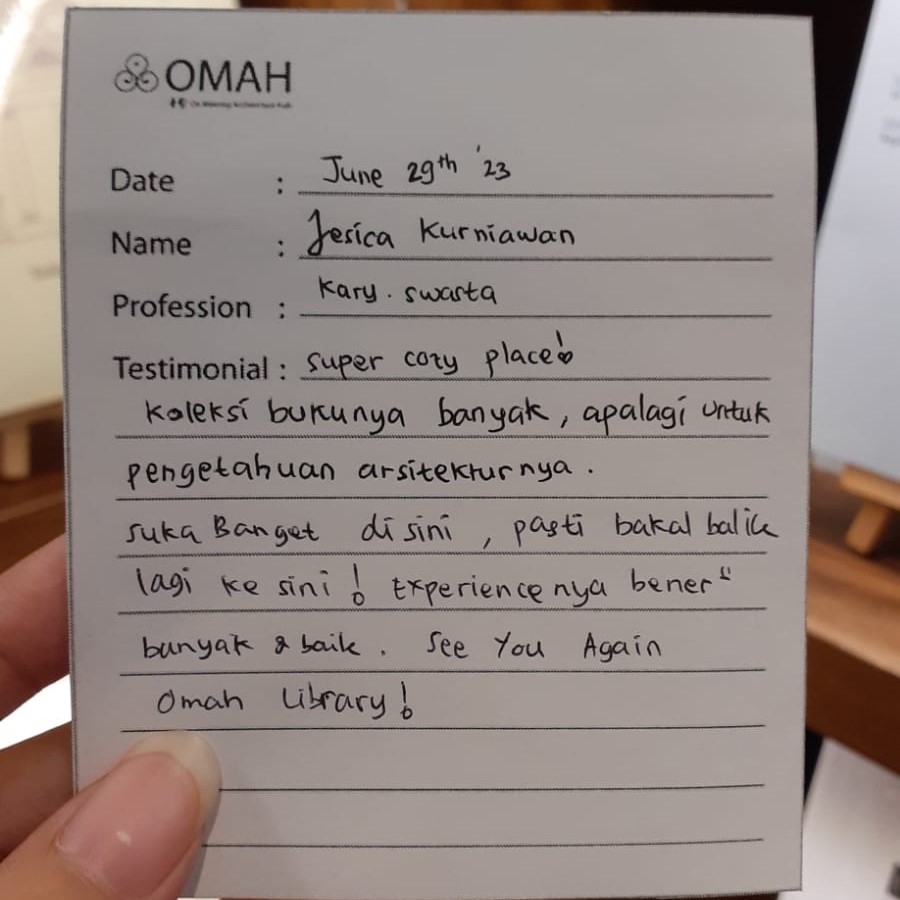 OMAH
Date : June 29th '23
Name : Jesica Kurniawan
Profession : Kary. swasta
Testimonial : super cozy place!
Koleksi bukunya banyak, apalagi untuk
pengetahuan arsitekturnya.
suka Banget disini, pasti bakal balik
lagi ke sini! Experiencenya bener"
banyak & baik. See You Again
Omah Library!